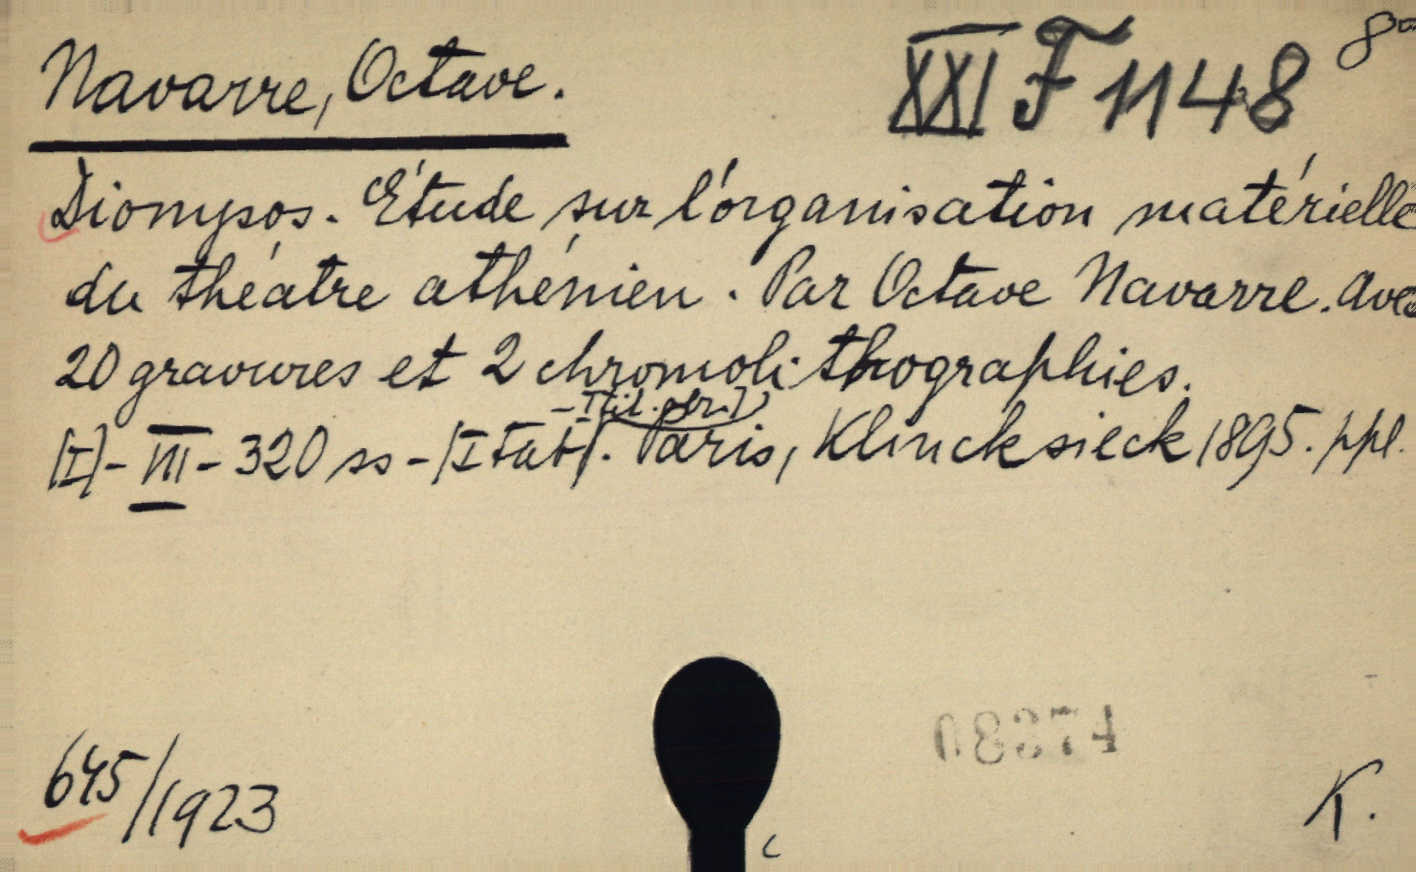 Navarre, Octave.
XXI F 1148
8°
Dionysos. Étude sur l'organisation matérielle
du théatre athénien. Par Octave Navarre. Avec
20 gravures et 2 chromolithographies.
[I]-VIII-320 ss-[I tab]. Paris, Klincksieck 1895. ppl.
645/1923
K.